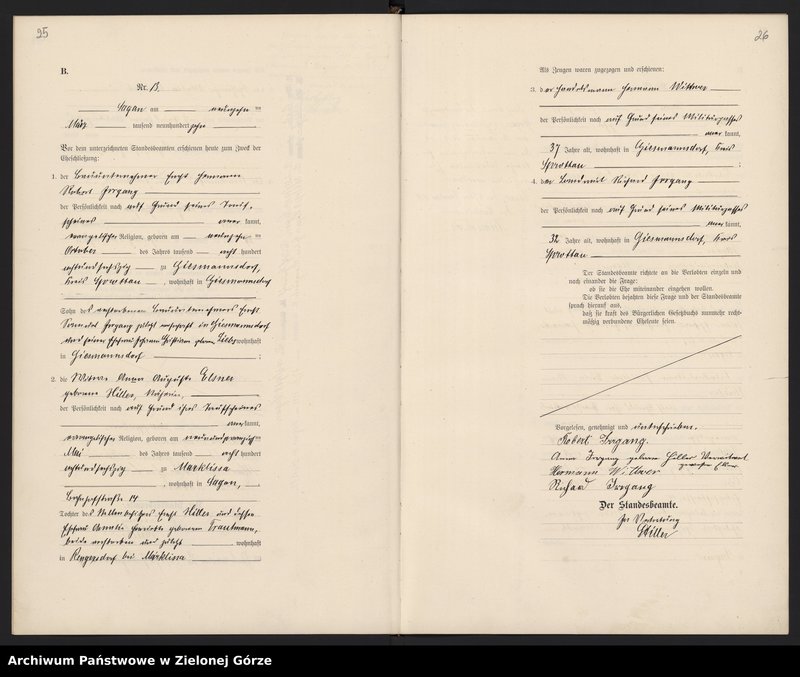 25
B.
Nr. 13.
Sagan am neunzehn ten
März tausend neunhundert zehn
Vor dem unterzeichneten Standesbeamten erschienen heute zum Zweck der
Eheschließung:
1. der Bauunternehmer Ernst Hermann
Robert Irrgang
der Persönlichkeit nach auf Grund seines Tauf-
scheines aner kannt,
evangelischer Religion, geboren am neunzehn ten
Oktober des Jahres tausend acht hundert
achtundsechszig zu Giesmannsdorf,
Kreis Sprottau, wohnhaft in Giesmannsdorf
Sohn des verstorbenen Bauunternehmers Ernst
Irrgang zuletzt wohnhaft in Giesmannsdorf
und seiner Ehefrau Johanne Christiane geborene wohnhaft
in Giesmannsdorf ;
2. die Witwe Anna Auguste Elsner
geborene Hiller,
der Persönlichkeit nach auf Grund ihres Taufscheines
aner kannt,
evangelischer Religion, geboren am neunundzwanzig ten
Mai des Jahres tausend acht hundert
achtundsechszig zu Marklissa
, wohnhaft in Sagan,
Bahnhofstraße 14
Tochter des Stellenbesitzers Ernst Hiller und dessen
Ehefrau Henriette geborenen Trautmann,
beide verstorben und zuletzt wohnhaft
in Rengersdorf bei Marklissa
26
Als Zeugen waren zugezogen und erschienen:
3. der Handelsmann Hermann Wittwer
der Persönlichkeit nach auf Grund seines Militärpasses
aner kannt,
37 Jahre alt, wohnhaft in Giesmannsdorf, Kreis
Sprottau ;
4. der Landwirt Richard Irrgang
der Persönlichkeit nach auf Grund seines Militärpasses
aner kannt,
32 Jahre alt, wohnhaft in Giesmannsdorf, Kreis
Sprottau
Der Standesbeamte richtete an die Verlobten einzeln und
nach einander die Frage:
ob sie die Ehe miteinander eingehen wollen.
Die Verlobten bejahten diese Frage und der Standesbeamte
sprach hierauf aus,
daß sie kraft des Bürgerlichen Gesetzbuchs nunmehr recht-
mäßig verbundene Eheleute seien.
Vorgelesen, genehmigt und unterschrieben.
Robert Irrgang.
Anna Irrgang geborene Hiller Verwitwet
gewesene Elsner
Hermann Wittwer
Richard Irrgang
Der Standesbeamte.
In Vertretung
Hiller
Archiwum Państwowe w Zielonej Górze